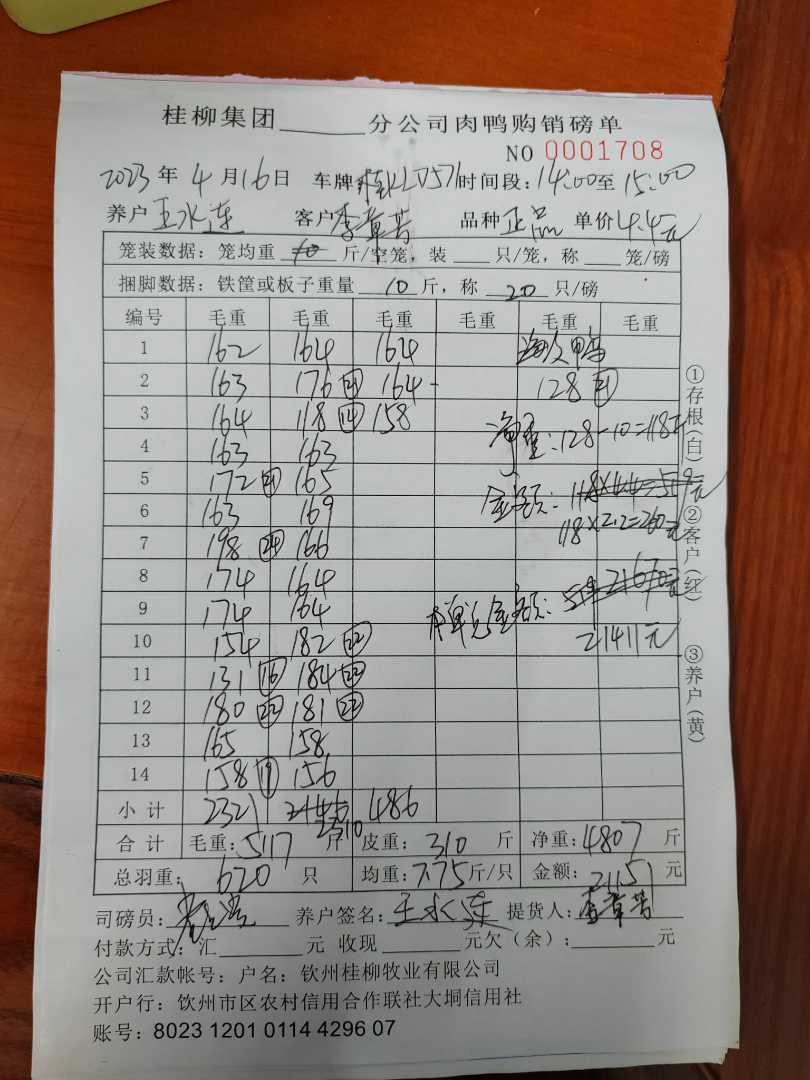 桂柳集团______分公司肉鸭购销磅单
NO 0001708
2023年4月16日 车牌桂KLD571时间段:14:00至15:00
养户王水连 客户李章芳 品种正品 单价4.4元
笼装数据:笼均重 10 斤/空笼,装___只/笼,称___笼/磅
捆脚数据:铁筐或板子重量 10 斤,称 20 只/磅
编号 毛重 毛重 毛重 毛重 毛重 毛重
1 162 164 164 海次鸭
2 163 176 21 164 128 21
3 164 118 14 158 净重:128-10=118斤
4 163 163
5 172 21 165 金额:118×4.4=519元
6 163 169 118×2.2=260元
7 198 24 166
8 174 164 519 21670元
9 174 164 本单总金额:
10 154 182 22 21411元
11 131 16 184 22
12 180 22 181 22
13 165 158
14 158 19 156
小计 2321 486
2310
合计 毛重:5117斤 皮重:310斤 净重:4807斤
总羽重:620只 均重:7.75斤/只 金额:21151元
司磅员: 养户签名:王水连 提货人:李章芳
付款方式:汇______元 收现______元欠(余):______元
公司汇款帐号:户名:钦州桂柳牧业有限公司
开户行:钦州市区农村信用合作联社大垌信用社
账号:8023 1201 0114 4296 07
①存根(白)②客户(红)③养户(黄)